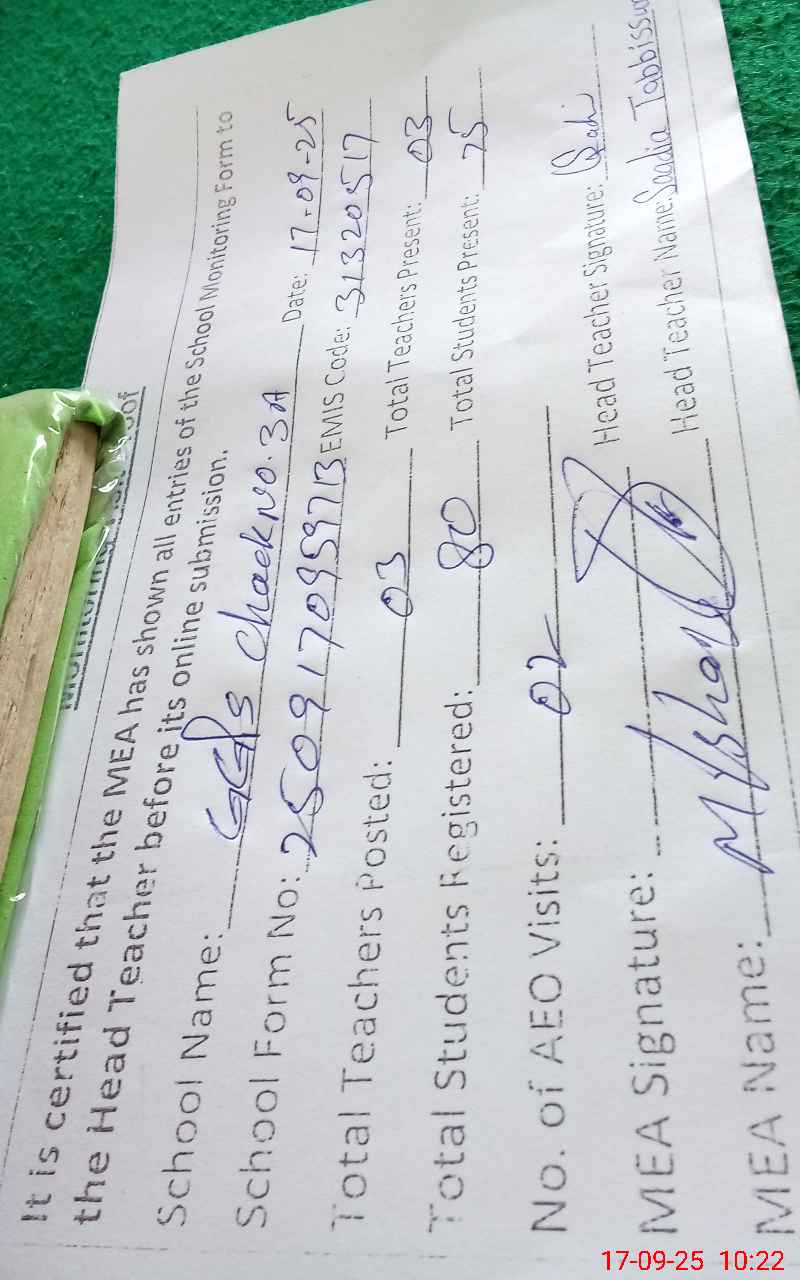 It is certified that the MEA has shown all entries of the School Monitoring Form to
the Head Teacher before its online submission.
School Name: GGPS Chack No. 3A Date: 17-09-25
School Form No: 2509170959713 EMIS Code: 31320517
Total Teachers Posted: 03 Total Teachers Present: 03
Total Students Registered: 80 Total Students Present: 75
No. of AEO Visits: 02
MEA Signature: Head Teacher Signature: Sadi
MEA Name: Head Teacher Name: Saadia Tabbissum
17-09-25 10:22